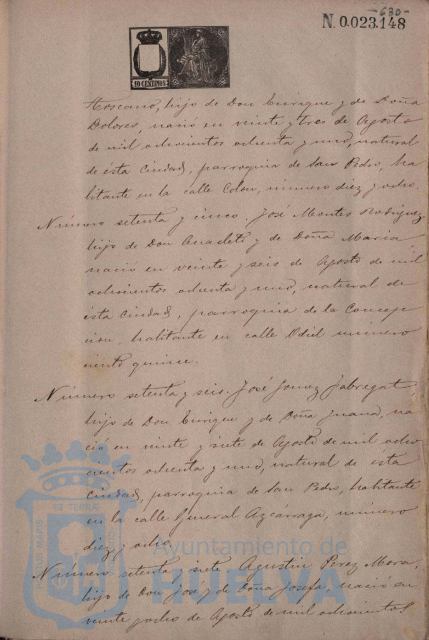 -680-
N. 0.023.148
10 CENTIMOS
Toscano, hijo de Don Enrique y de Doña
Dolores, nació en veinte y tres de Agosto
de mil ochocientos ochenta y uno, natural
de esta Ciudad, parroquia de San Pedro, ha-
bitante en la calle Colon, número diez y ocho.
Número setenta y cinco. José Montes Rodriguez,
hijo de Don Anacleto y de Doña Maria
nació en veinte y seis de Agosto de mil
ochocientos ochenta y uno, natural de
esta Ciudad, parroquia de la Concep-
cion, habitante en calle Odiel número
ciento quince.
Número setenta y seis. José Gomez Jabregat
hijo de Don Enrique y de Doña Juana, na-
ció en veinte y siete de Agosto de mil ocho-
cientos ochenta y uno, natural de esta
Ciudad, parroquia de San Pedro, habitante
en la calle General Azcárraga, número
diez y ocho.
Número setenta y siete Agustin Perez Mora,
hijo de Don José y de Doña Josefa, nació en
veinte y ocho de Agosto de mil ochocientos
Ayuntamiento de
HUELVA